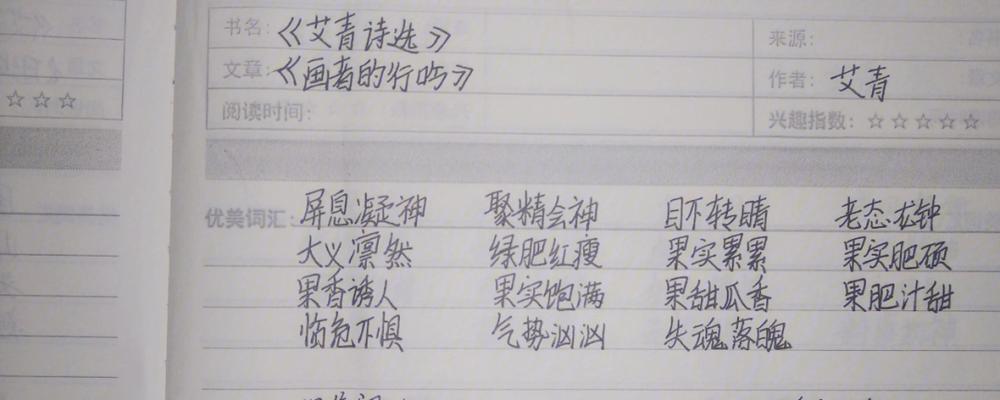 书名：《艾青诗选》
来源：
文章：《画者的行吟》
作者：艾青
阅读时间：
兴趣指数：☆☆☆☆☆
☆☆☆
优美词汇：屏息凝神 聚精会神 目不转睛 老态龙钟
大义凛然 绿肥红瘦 果实累累 果实肥硕
果香诱人 果实饱满 果甜瓜香 果肥汁甜
临危不惧 气势汹汹 失魂落魄